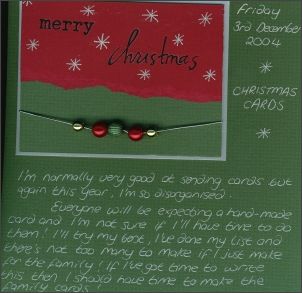 merry
Christmas
Friday
3rd December
2004
CHRISTMAS
CARDS
I'm normally very good at sending cards but
again this year, I'm so disorganised.
Everyone will be expecting a hand-made
card and I'm not sure if I'll have time to do
them! I'll try my best, I've done my list and
there's not too many to make if I just make
for the family! If I've got time to write
this then I should have time to make the
family cards